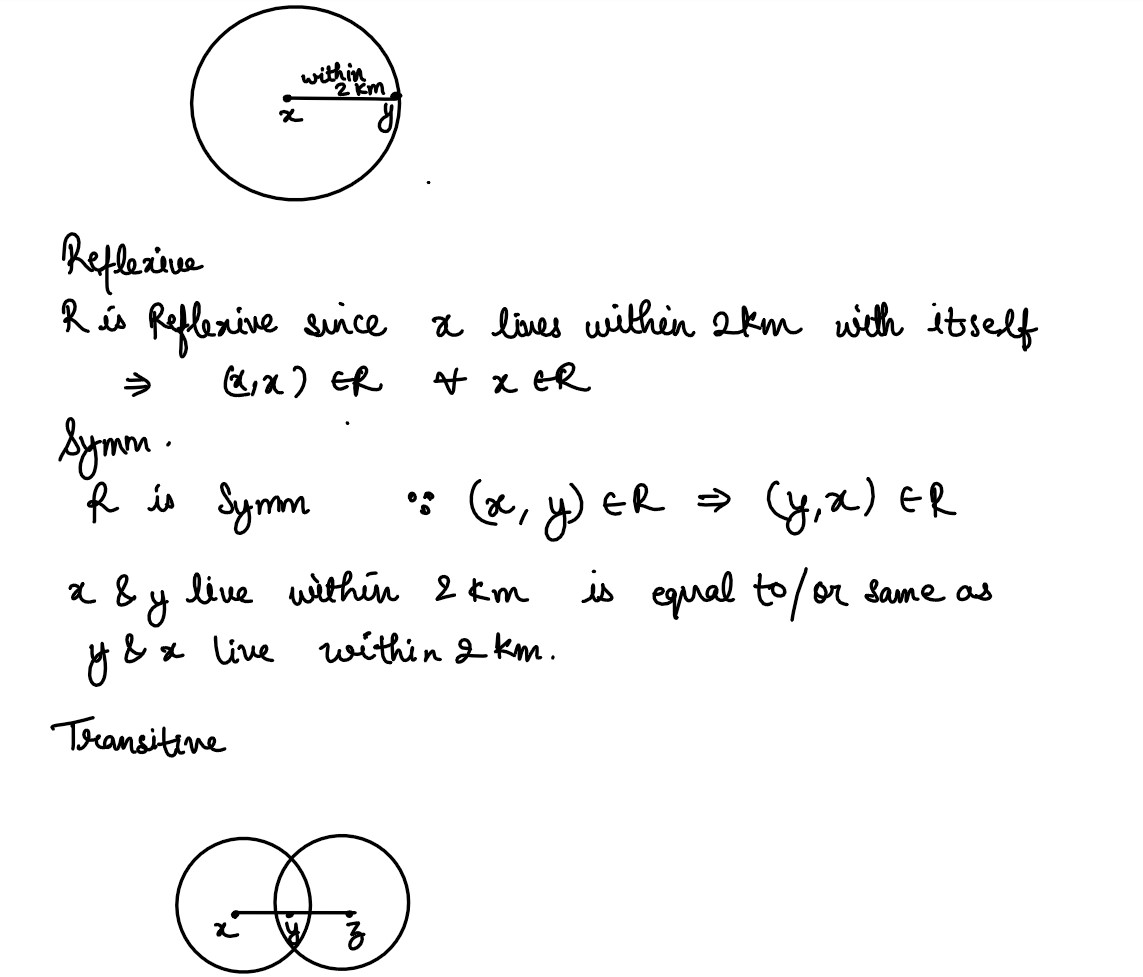 within
2 km
x y
Reflexive
R is Reflexive since x lives within 2km with itself
⇒ (x,x) ∈R ∀ x ∈R
Symm.
R is Symm ∵ (x, y) ∈R ⇒ (y,x) ∈R
x & y live within 2 km is equal to/or same as
y & x live within 2 km.
Transitive
x y z